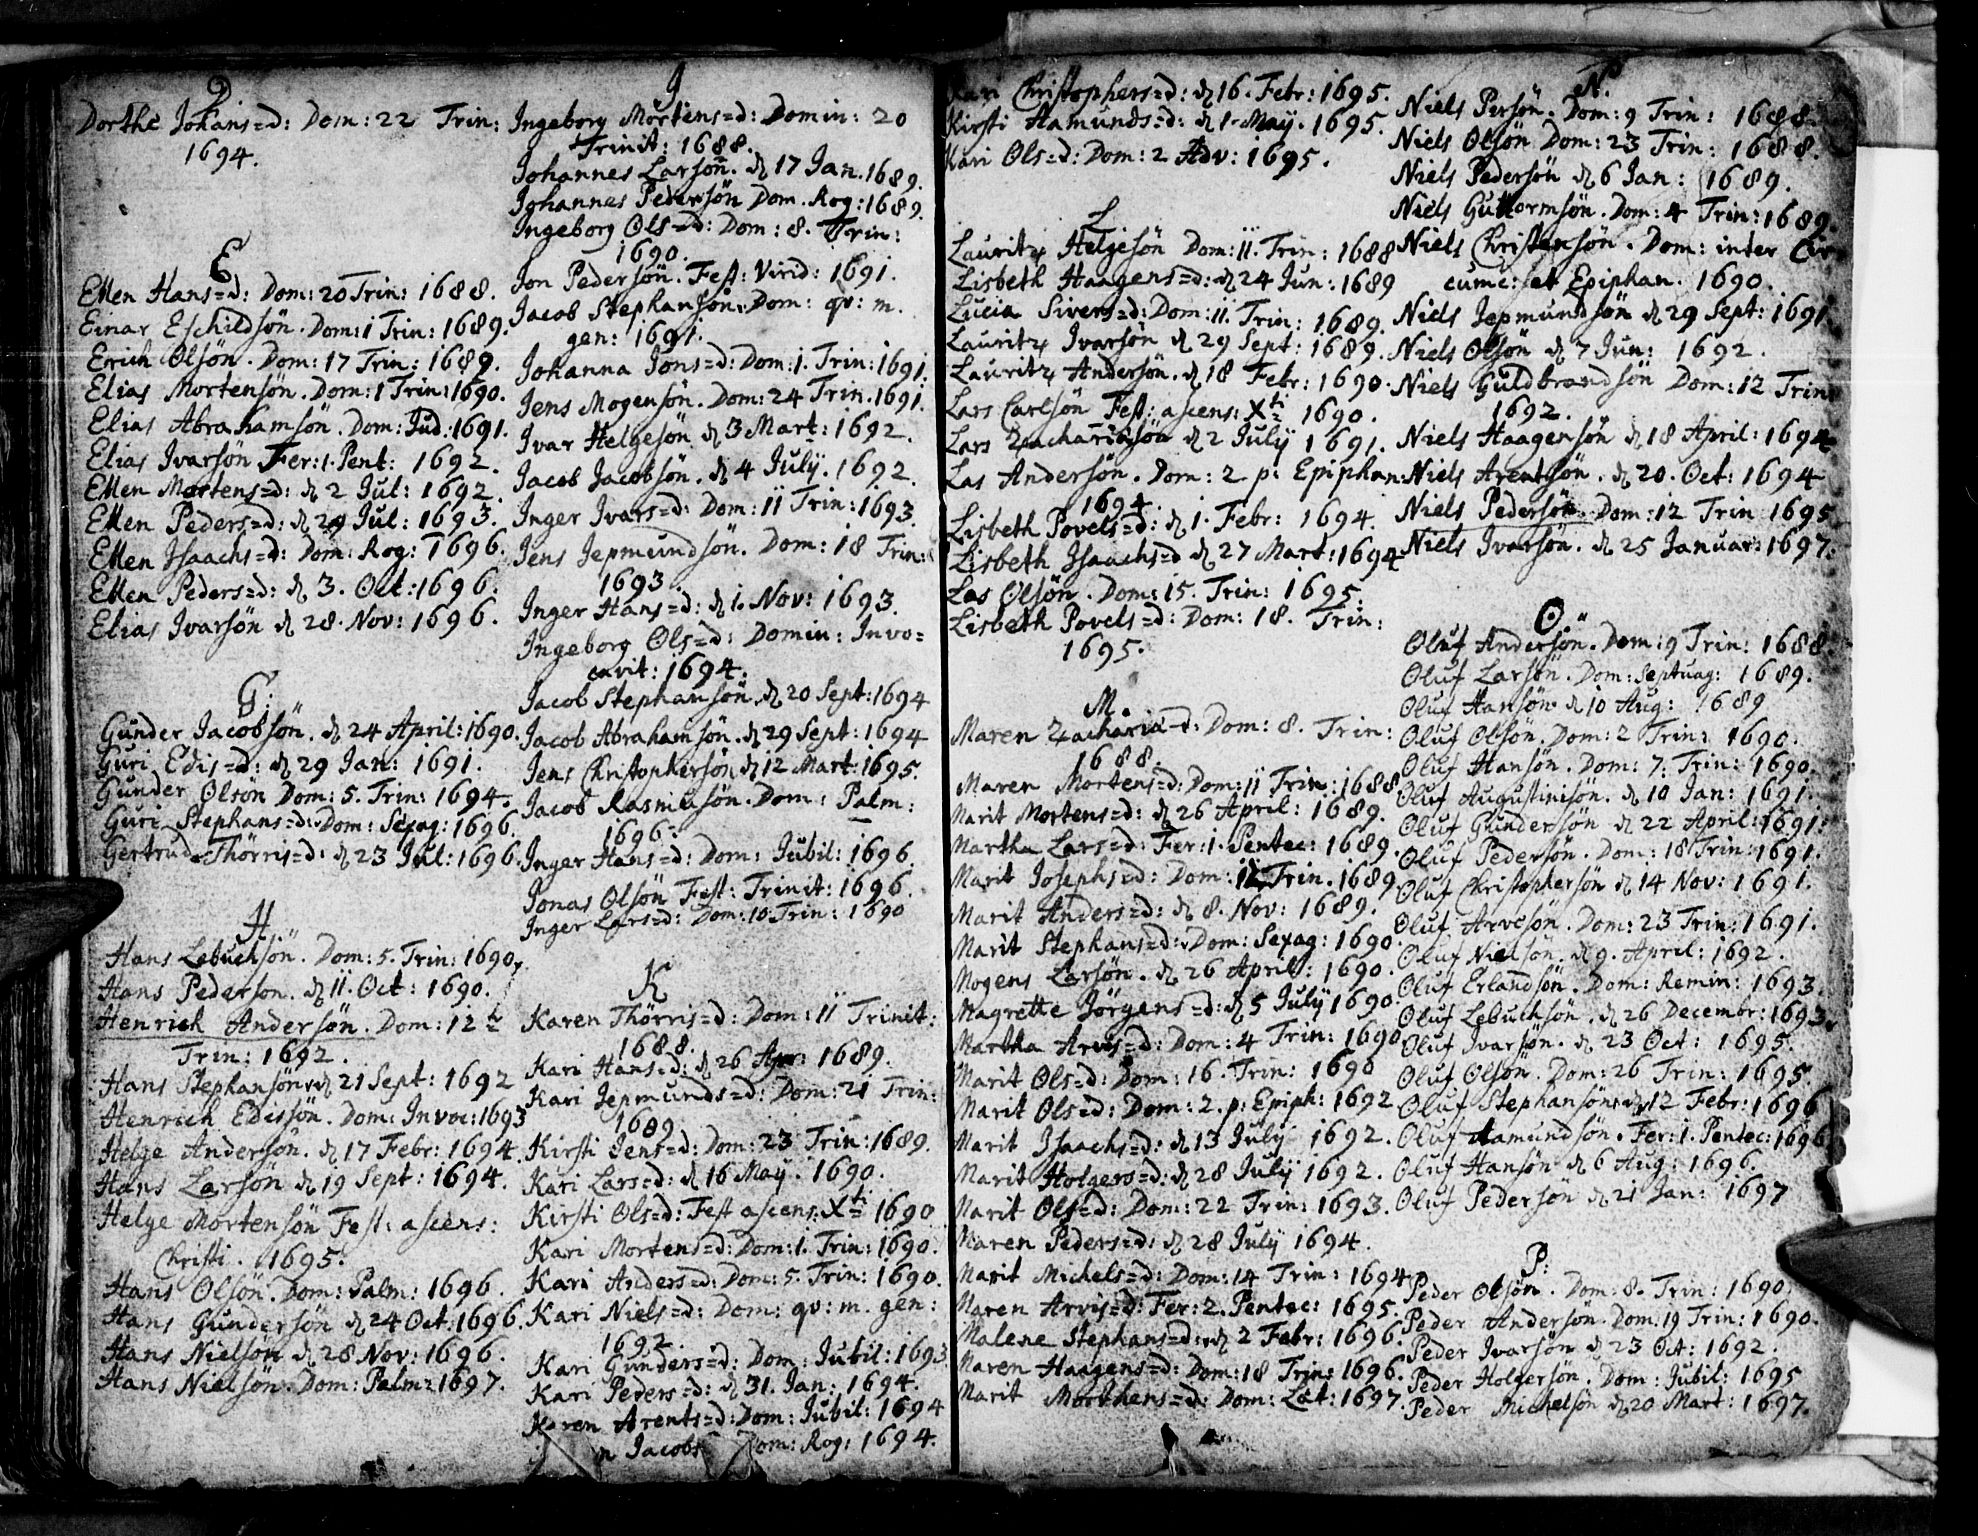 D
Dorthe Johans=d: Dom: 22 Trin:
1694.
E
Ellen Hans=d: Dom: 20 Trin: 1688.
Einar Eschildsön. Dom: 1 Trin: 1689.
Erich Olsön. Dom: 17 Trin: 1689.
Elias Mortensön. Dom: 1 Trin: 1690.
Elias Abrahamsön. Dom: Jud: 1691.
Elias Ivarsön Fer: 1. Pent: 1692.
Ellen Mortens=d: d 2 Jul: 1692.
Ellen Peders=d: d 29 Jul: 1693.
Ellen Isaachs=d: Dom: Rog: 1696.
Ellen Peders=d: d 3. Oct: 1696.
Elias Ivarsön d 28. Nov: 1696.
G:
Gunder Jacobsön. d 24 April: 1690.
Guri Edis=d: d 29 Jan: 1691.
Gunder Olsön Dom: 5. Trin: 1694.
Guri Stephans=d: Dom: Sexag: 1696.
Gertrud Thörris=d: d 23 Jul: 1696.
H
Hans Lebuchsön. Dom: 5. Trin: 1690.
Hans Pederson. d 11. Oct: 1690.
Henrich Andersön. Dom: 12
Trin: 1692.
Hans Stephansön d 21 Sept: 1692
Henrich Edissön. Dom: Invoc: 1693
Helge Andersön. d 17 Febr: 1694.
Hans Larsön d 19 Sept: 1694.
Helge Mortensön Fest: ascens:
Christi. 1695.
Hans Olsön. Dom: Palm: 1696.
Hans Gundersön d 24 Oct: 1696.
Hans Nielsön d 28 Nov: 1696.
Hans Nielson. Dom: Palm: 1697.
J
Ingeborg Mortens=d: Domin: 20
Trinit: 1688.
Johannes Larsön. d 17 Jan. 1689.
Johannes Pedersön Dom. Rog: 1689.
Ingeborg Ols=d: Dom: 8. Trin:
1690.
Jon Pedersön. Fest: Virid: 1691.
Jacob Stephansön. Dom: qv: m.
gen: 1691.
Johanna Jons=d: Dom: 1. Trin: 1691.
Jens Mogensön. Dom: 24 Trin. 1691.
Ivar Helgesön d 3 Mart: 1692.
Jacob Jacobsön. d 4 July. 1692.
Inger Ivars=d: Dom: 11 Trin: 1693.
Jens Jepmundsön. Dom: 18 Trin:
1693.
Inger Hans=d: d 1. Nov: 1693.
Ingeborg Ols=d: Domin: Invo=
cavit: 1694.
Jacob Stephansön. d 20 Sept: 1694
Jacob Abrahamsön. d 29 Sept: 1694
Jens Christophersön d 12 Mart: 1695.
Jacob Rasmusön. Dom: Palm:
1696.
Inger Hans=d: Dom: Jubil: 1696.
Jonas Olsön Fest: Trinit: 1696.
Inger Lars=d: Dom: 10 Trin: 1690
K
Karen Thörris=d: Dom: 11 Trinit:
1688.
Kari Hans=d: d 26 Apr: 1689.
Kari Jepmunds=d: Dom: 21 Trin:
1689
Kirsti Jens=d: Dom: 23 Trin: 1689.
Kari Lars=d: d 16 May. 1690.
Kirsti Ols=d: Fest ascens: Xti 1690
Kari Mortens=d: Dom: 1. Trin: 1690.
Kari Anders=d: Dom: 5. Trin: 1690.
Kari Niels=d: Dom: qv: m. gen:
1692
Kari Gunders=d: Dom: Jubil: 1693
Kari Peders=d: d 31. Jan: 1694.
Karen Arents=d: Dom: Jubil: 1694
n Jacobs om: Rog: 1694.
Kari Christophers=d: d 16. Febr: 1695.
Kirsti Hamunds=d: d 1. May. 1695.
Kari Ols=d: Dom: 2 Adv: 1695.
L
Lauritz Helgesön Dom: 11. Trin: 1688
Lisbeth Haagens=d: d 24 Jun: 1689
Lucia Sivers=d: Dom: 11. Trin: 1689.
Lauritz Ivarsön d 29 Sept: 1689.
Lauritz Andersön. d 18 Febr: 1690.
Lars Carlsön Fest: ascens: Xti 1690.
Lars Zachariasön d 2 July 1691.
Las Andersön. Dom: 2 p: Epiphan
1694
Lisbeth Povels=d: d 1. Febr: 1694.
Lisbeth Isaachs=d d 27 Mart: 1694
Las Olsön. Dom: 15. Trin: 1695.
Lisbeth Povels=d: Dom: 18. Trin:
1695.
M.
Maren Zacharia=d: Dom: 8. Trin:
1688.
Maren Mortens=d: Dom: 11 Trin: 1688.
Marit Mortens=d: d 26 April: 1689.
Martha Lars=d: Fer: 1. Pentec: 1689.
Marit Josephs=d: Dom: 11 Trin. 1689
Marit Anders=d: d 8. Nov: 1689.
Marit Stephans=d: Dom: Sexag: 1690.
Mogens Larsön. d 26 April: 1690.
Magrette Jörgens=d: d 5 July 1690.
Martha Arvis=d: Dom: 4 Trin: 1690
Marit Ols=d: Dom: 16. Trin: 1690
Marit Ols=d: Dom: 2. p: Epiph: 1692
Marit Isaachs=d: d 13 July 1692.
Marit Holgers=d: d 28 July 1692.
Marit Ols=d: Dom: 22 Trin: 1693.
Maren Peders=d: d 28 July 1694.
Marit Michels=d: Dom: 14 Trin: 1694
Maren Arvis=d: Fer: 2. Pentec: 1695.
Malene Stephans=d: d 2 Febr: 1696.
Maren Haagens=d: Dom: 18 Trin: 1696.
Marit Morthens=d: Dom: Læt: 1697.
N.
Niels Persön. Dom: 9 Trin: 1688.
Niels Olsön Dom: 23 Trin: 1688.
Niels Pedersön d 6 Jan: 1689.
Niels Guttormsön. Dom: 4 Trin: 1689.
Niels Christensön. Dom: inter Cir
cumc: et Epiphan. 1690.
Niels Jepmundsön d 29 Sept: 1691.
Niels Olsön d 7 Jun: 1692.
Niels Guldbrandsön Dom: 12 Trin
1692.
Niels Haagensön d 18 April: 1694
Niels Arentsön. d 20. Oct: 1694
Niels Pedersön Dom: 12 Trin 1695
Niels Ivarsön. d 25 Januar: 1697.
O
Oluf Andersön. Dom: 9 Trin: 1688
Oluf Larsön. Dom: Septuag: 1689.
Oluf Hansön d 10 Aug: 1689
Oluf Olsön. Dom: 2 Trin: 1690.
Oluf Hansön. Dom: 7. Trin: 1690.
Oluf Augustinisön. d 10 Jan: 1691.
Oluf Gundersön d 22 April: 1691.
Oluf Pedersön. Dom: 18 Trin: 1691.
Oluf Christophersön d 14 Nov: 1691.
Oluf Arvesön. Dom: 23 Trin: 1691.
Oluf Nielsön. d 9. April: 1692.
Oluf Erlandsön. Dom: Remin: 1693.
Oluf Lebuchsön. d 26 Decembr: 1693.
Oluf Ivarsön. d 23 Oct: 1695.
Oluf Olsön. Dom: 26 Trin: 1695.
Oluf Stephansön d 12 Febr: 1696
Oluf Hamundsön. Fer: 1. Pentec: 1696
Oluf Hansön d 6 Aug: 1696.
Oluf Pedersön d 21 Jan: 1697
P:
Peder Olsön. Dom: 8. Trin: 1690
Peder Andersön. Dom: 19 Trin: 1690.
Peder Ivarsön d 23 Oct: 1692.
Peder Holgersön. Dom: Jubil: 1695
Peder Michelsön d 20 Mart: 1697.